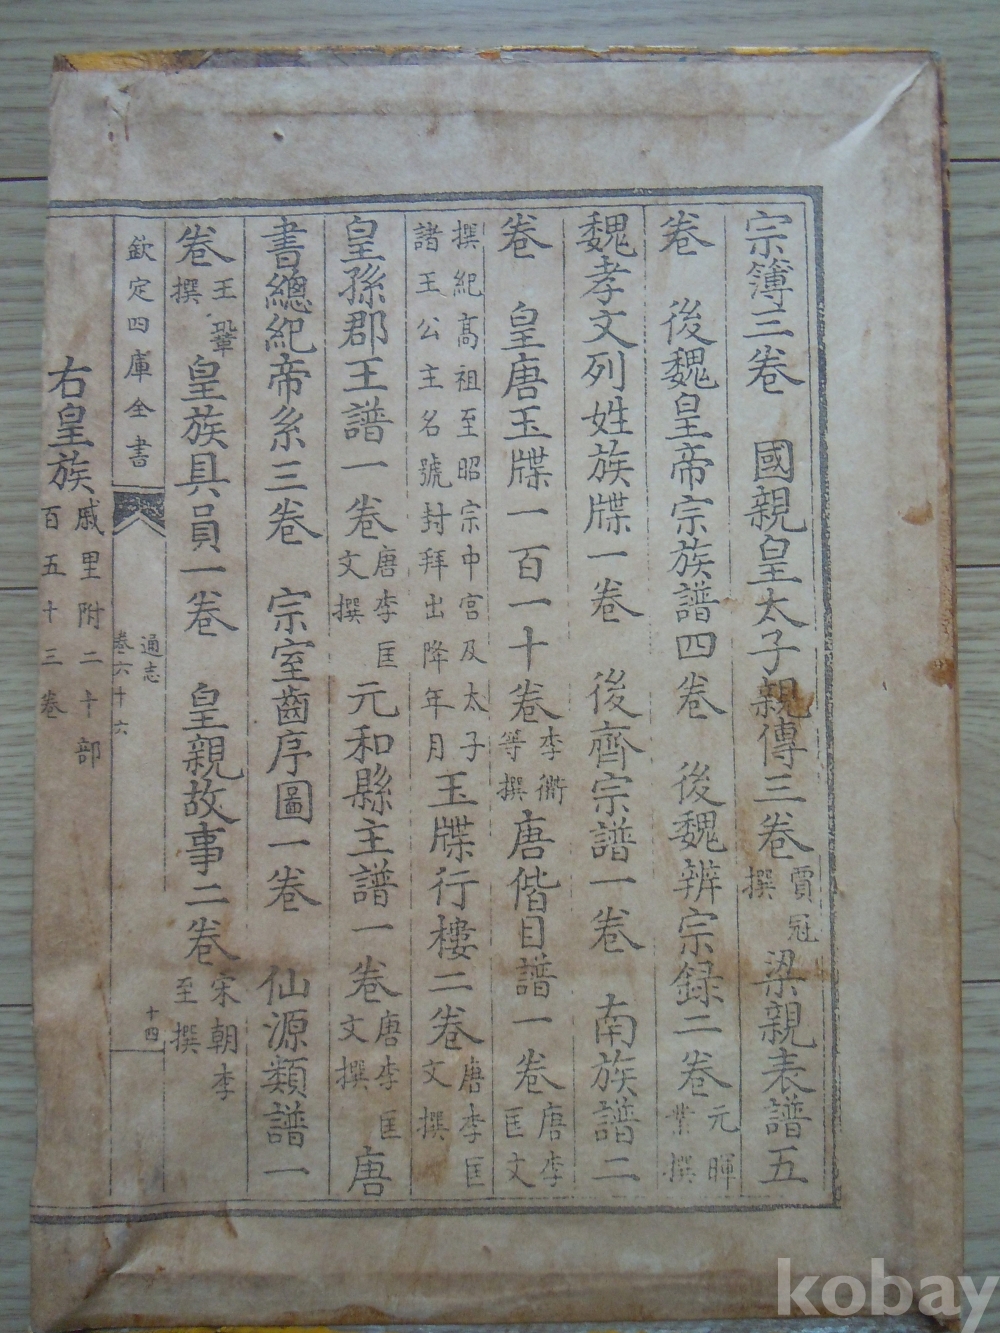 宗簿三卷　國親皇太子親傳三卷賈冠撰梁親表譜五
卷　後魏皇帝宗族譜四卷　後魏辨宗録二卷元暉業撰
魏孝文列姓族牒一卷　後齊宗譜一卷　南族譜二
卷　皇唐玉牒一百一十卷李衢等撰唐偕目譜一卷唐李匡文
撰紀高祖至昭宗中宮及太子諸王公主名號封拜出降年月玉牒行樓二卷唐李匡文撰
皇孫郡王譜一卷唐李匡文撰元和縣主譜一卷唐李匡文撰唐
書總紀帝系三卷　宗室齒序圖一卷　仙源類譜一
卷王鞏撰皇族具員一卷　皇親故事二卷宋朝李至撰
欽定四庫全書
通志
卷六十六
十四
右皇族戚里附二十部百五十三卷
kobay